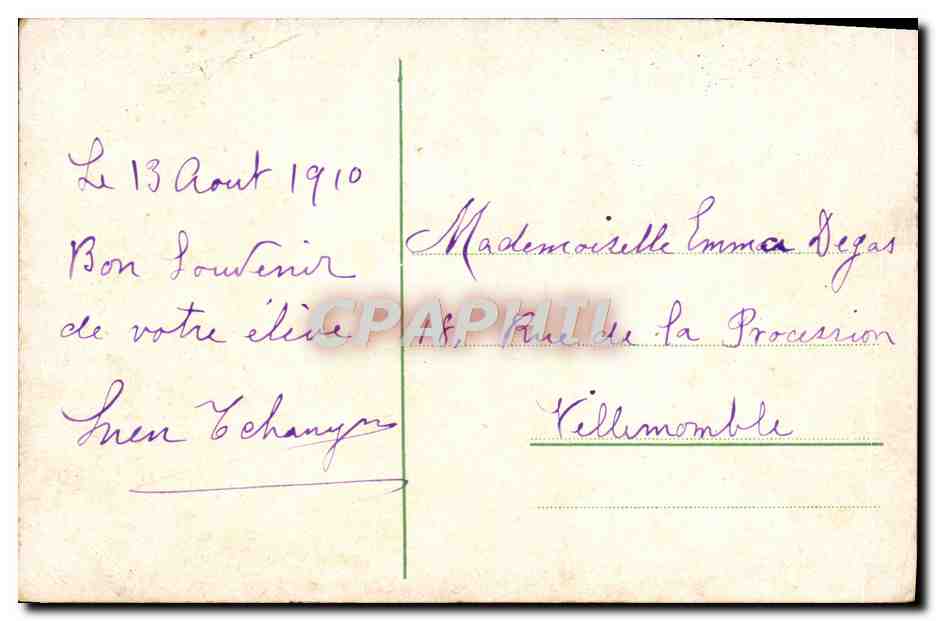 Le 13 Aout 1910
Bon Souvenir
de votre élève
Mademoiselle Emma Degas
18, Rue de la Procession
Villemomble
CPAPHIL